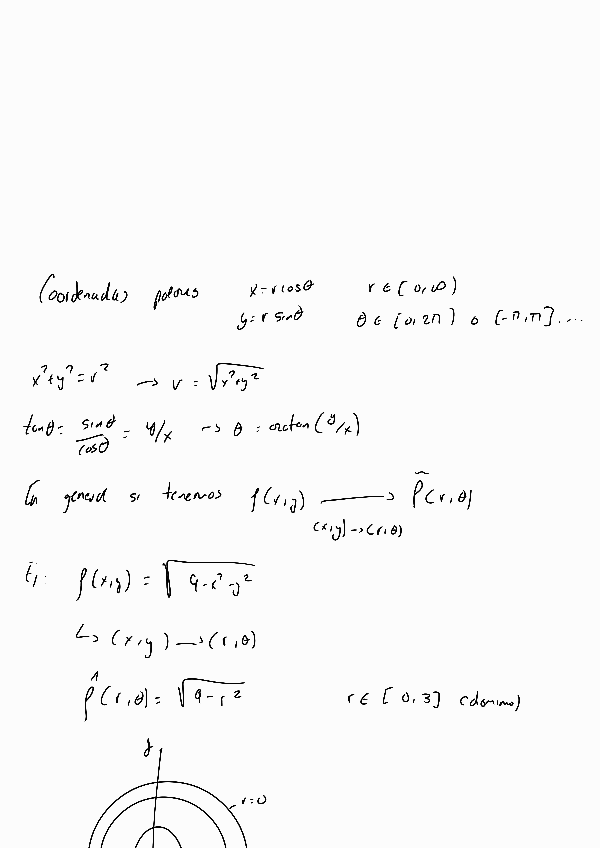 Coordenadas polares x = r cosθ r ∈ [0,∞)
y = r sinθ θ ∈ [0,2π) o [-π,π]....
x²+y² = r² → r = √(x²+y²)
tanθ = sinθ/cosθ = y/x → θ = arctan(y/x)
En general si tenemos f(x,y) → f̃(r,θ)
(x,y) → (r,θ)
Ej. f(x,y) = √(9-x²-y²)
↳ (x,y) → (r,θ)
f̂(r,θ) = √(9-r²) r ∈ [0,3] (dominio)
y
r=0